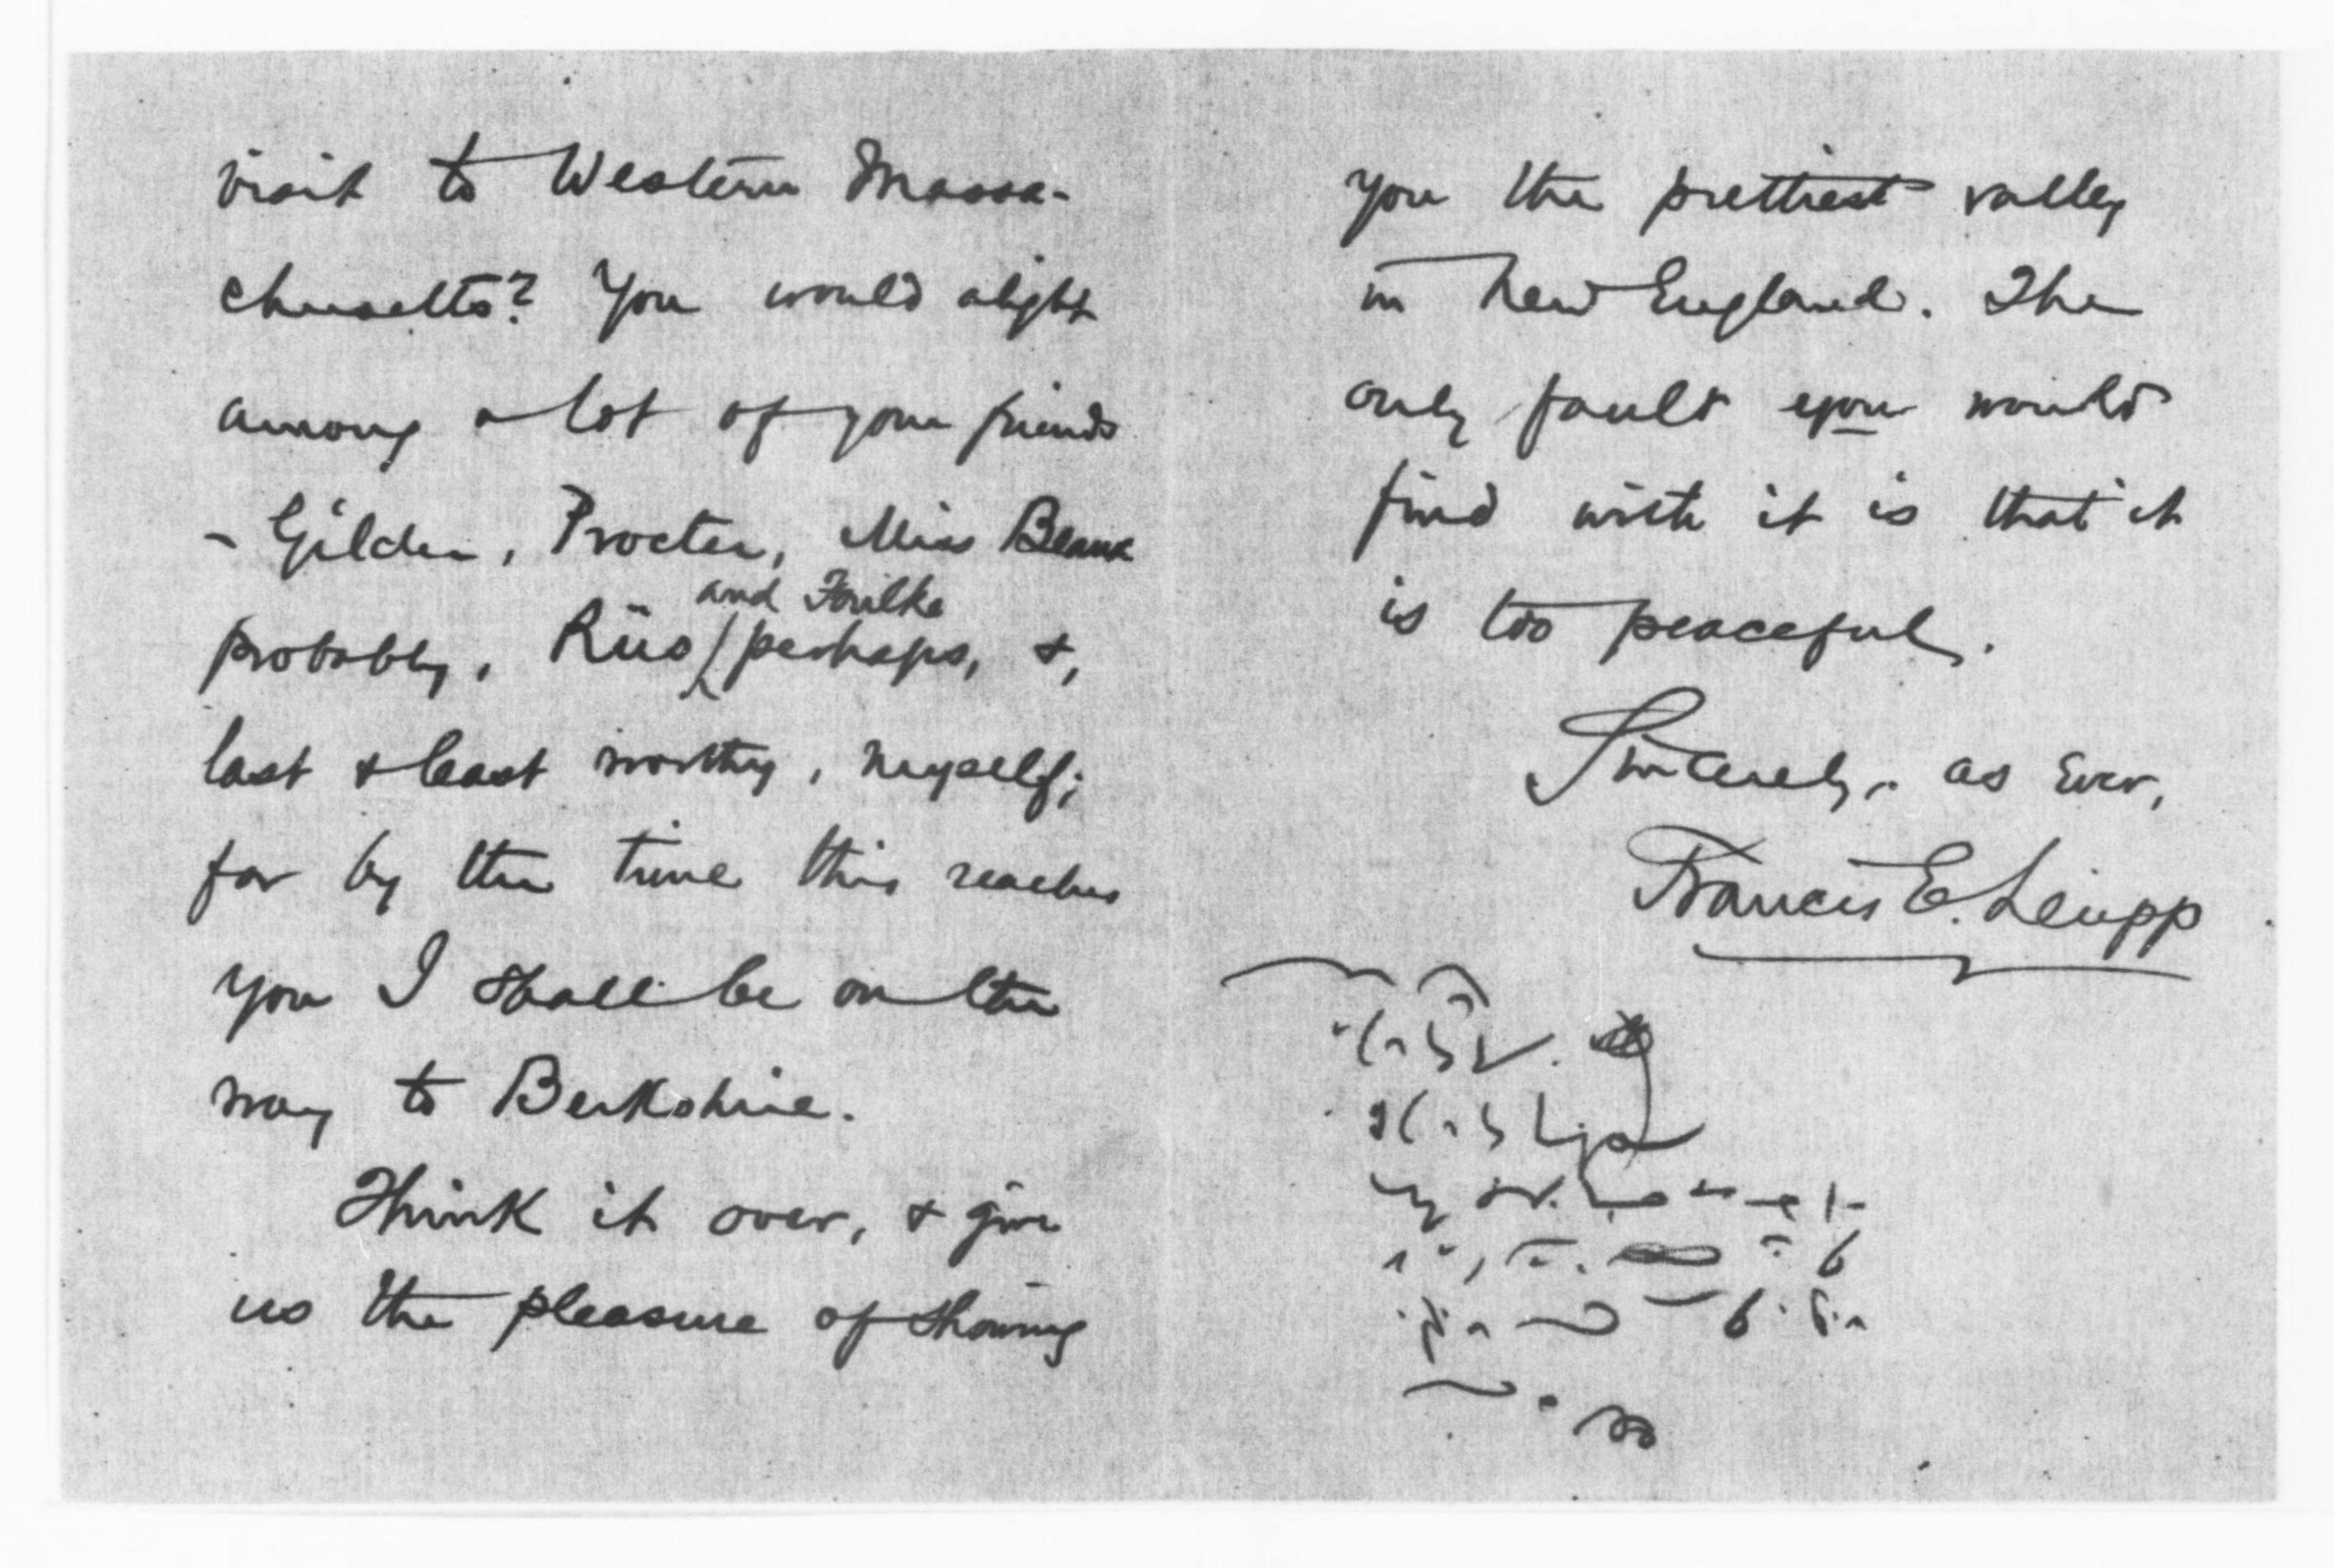 visit to Western Massa-
chusetts? You would alight
among a lot of your friends
- Gilder, Procter, Miss Beaux
and Foulke
probably, Riis perhaps, &,
last & least worthy, myself;
for by the time this reaches
you I shall be on the
way to Berkshire.
Think it over, & give
us the pleasure of showing
you the prettiest valley
in New England. The
only fault you would
find with it is that it
is too peaceful.
Sincerely, as ever,
Francis E. Leupp